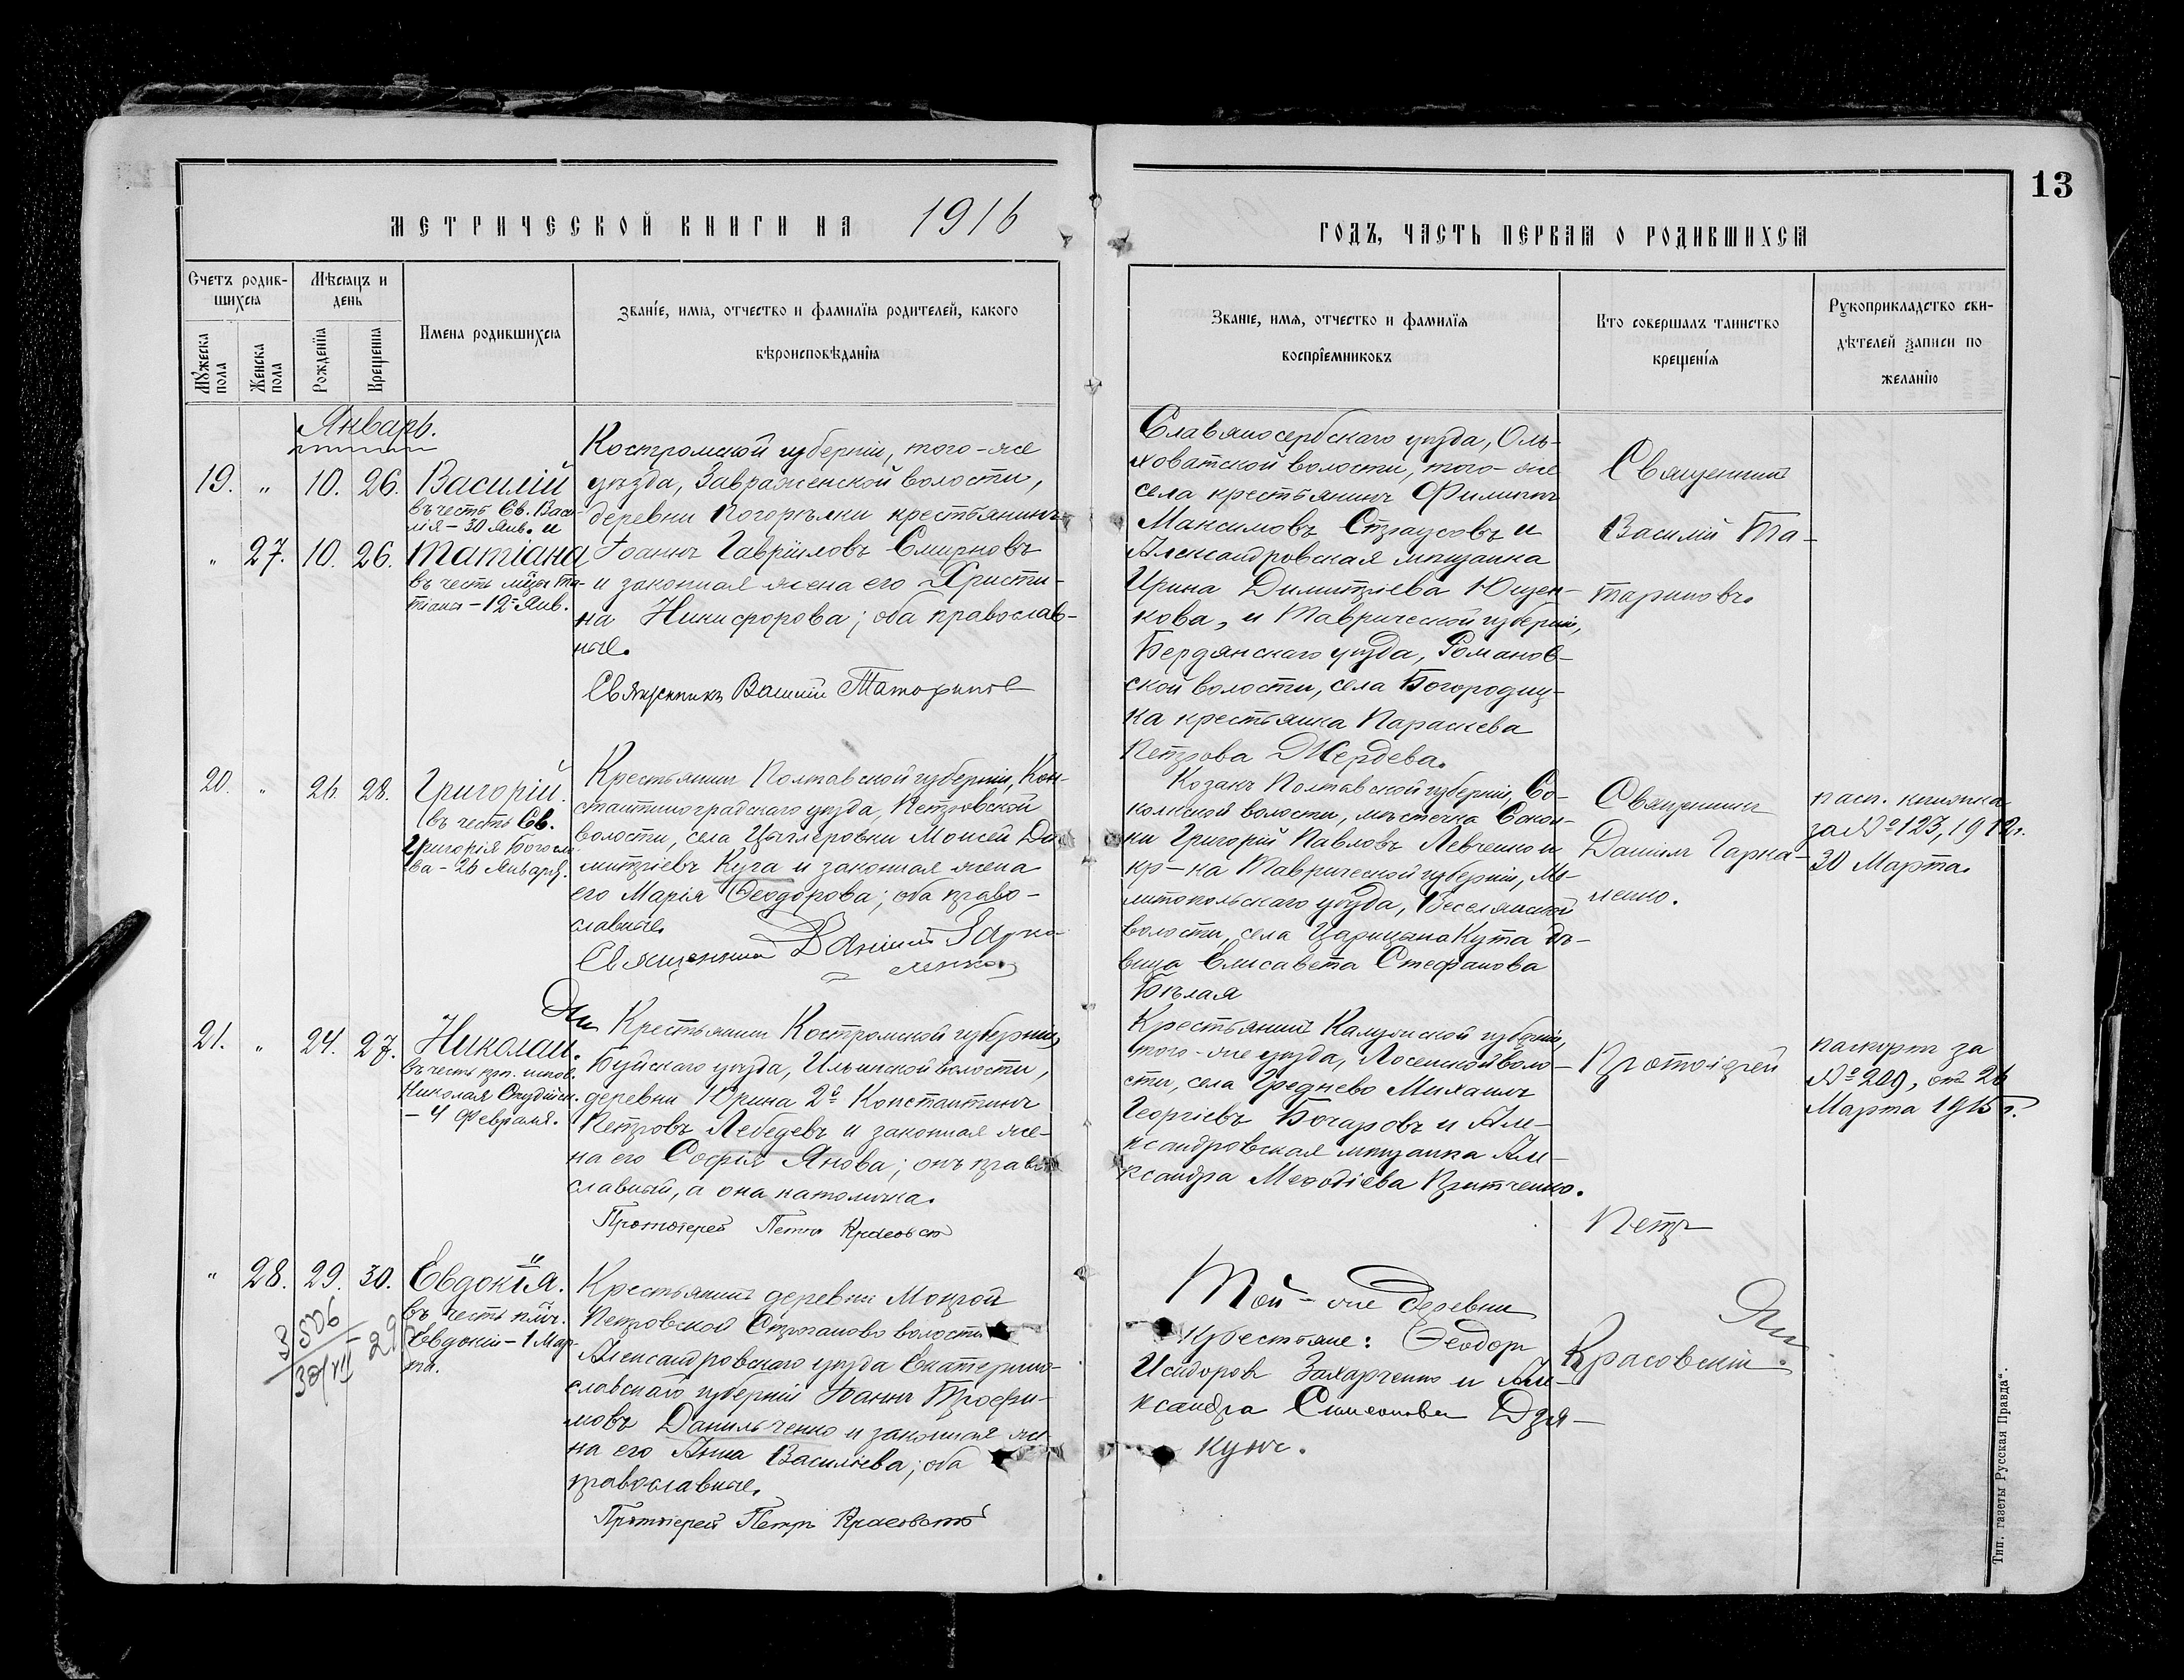 13
МЕТРИЧЕСКОЙ КНИГИ НА 1916
ГОДЪ, ЧАСТЬ ПЕРВАЯ О РОДИВШИХСЯ
Счетъ родив-
шихся
Мужеска пола
Женска пола
Мѣсяцъ и
день
Рожденія
Крещенія
Имена родившихся
Званіе, имя, отчество и фамилія родителей, какого
вѣроисповѣданія
Званіе, имя, отчество и фамилія
воспріемниковъ
Кто совершалъ таинство
крещенія
Рукоприкладство сви-
дѣтелей записи по
желанію
Январь.
19. " 10. 26. Василій
въ честь Св. Васи-
лія - 30 Янв. и
" 27. 10. 26. Татіана
въ честь мцы Та-
тіаны - 12 Янв.
Костромской губерніи, того-же
уѣзда, Завраженской волости,
деревни Погорѣлки крестьянинъ
Іоаннъ Гавріиловъ Смирновъ
и законная жена его Христи-
на Никифорова; оба православ-
ные.
Священникъ Василій Татариновъ
Славяносербскаго уѣзда, Оль-
ховатской волости, того-же
села крестьянинъ Филиппъ
Максимовъ Страусовъ и
Александровская мѣщанка
Ирина Димитріева Ющен-
кова, и Таврической губерніи,
Бердянскаго уѣзда, Романов-
ской волости, села Богородиц-
ка крестьянка Параскева
Петрова Жердева.
Священникъ
Василій Та-
тариновъ
20. " 26. 28. Григорій.
въ честь Св.
Григорія Богосло-
ва - 26 Января.
Крестьянинъ Полтавской губерніи, Кон-
стантиноградскаго уѣзда, Петровской
волости, села Цыглеровки Моисей Ди-
митріевъ Куча и законная жена
его Марія Ѳеодорова; оба право-
славные.
Священникъ Даніилъ Гарка-
ленко
Козакъ Полтавской губерніи, Со-
колской волости, мѣстечка Сокол-
ки Григорій Павловъ Левченко и
кр-ка Таврической губерніи, Ме-
литопольскаго уѣзда, Веселянской
волости, села Царицына Кута дѣ-
вица Елисавета Стефанова
Бѣлая
Священникъ
Даніилъ Гарка-
ленко.
пасп. книжка
за № 123, 1912 г.
30 Марта.
21. " 24. 27. Николай.
въ честь прп. испов.
Николая Студійск.
- 4 Февраля.
Крестьянинъ Костромской губерніи,
Буйскаго уѣзда, Ильинской волости,
деревни Юрина 2е Константинъ
Петровъ Лебедевъ и законная же-
на его Софія Янова; онъ право-
славный, а она католичка.
Протоіерей Петръ Красовскій
Крестьянинъ Калужской губерніи,
того-же уѣзда, Лосенской воло-
сти, села Гредnево Михаилъ
Георгіевъ Бочаровъ и Але-
ксандровская мѣщанка Але-
ксандра Меѳодіева Притченко.
Протоіерей
паспортъ за
№ 209, отъ 26
Марта 1915 г.
Петръ
" 28. 29. 30. Евдокія.
въ честь пмч.
Евдокіи - 1 Мар-
та.
Крестьянинъ деревни Мокрой
Петровской Строганово волости
Александровскаго уѣзда Екатерино-
славской губерніи Іоаннъ Трофи-
мовъ Данильченко и законная же-
на его Анна Васильева; оба
православные.
Протоіерей Петръ Красовскій
Той-же деревни
крестьяне: Ѳеодоръ
Исидоровъ Захарченко и Але-
ксандра Симеонова Дзя-
кунъ.
Красовскій.
Тип. газеты „Русская Правда".